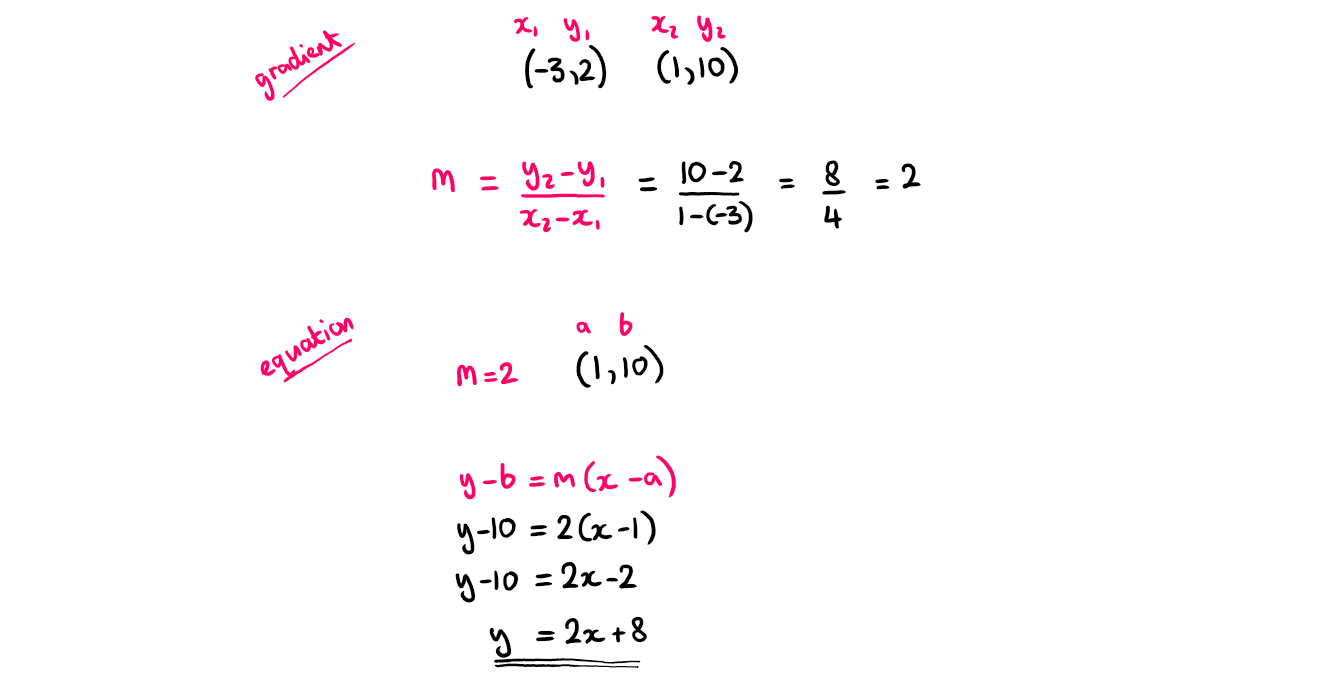 gradient
x₁ y₁ x₂ y₂
(-3,2) (1,10)
m = y₂-y₁/x₂-x₁ = 10-2/1-(-3) = 8/4 = 2
equation
a b
m=2 (1,10)
y-b = m(x-a)
y-10 = 2(x-1)
y-10 = 2x-2
y = 2x+8